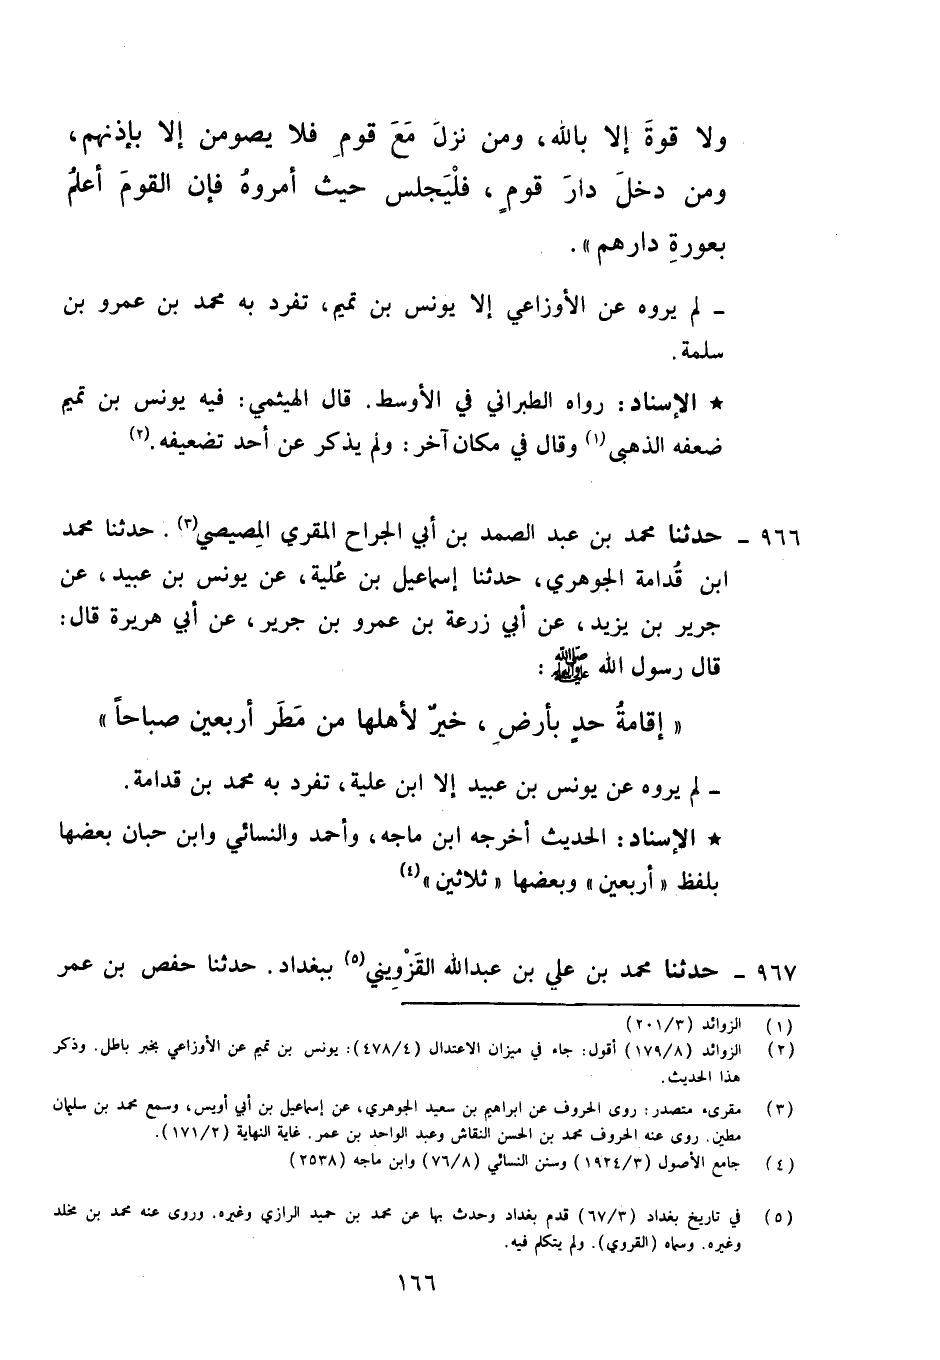 ولا قوةَ إلا بالله، ومن نزلَ مَعَ قومٍ فلا يصومن إلا بإذنهم،
ومن دخلَ دارَ قومٍ، فلْيَجلس حيث أمروهُ فإن القومَ أعلمُ
بعورةِ دارهم».
ـ لم يروه عن الأوزاعي إلا يونس بن تميم، تفرد به محمد بن عمرو بن
سلمة.
★ الإسناد: رواه الطبراني في الأوسط. قال الهيثمي: فيه يونس بن تميم
ضعفه الذهبي(١) وقال في مكان آخر: ولم يذكر عن أحد تضعيفه.(٢)
٩٦٦ ـ حدثنا محمد بن عبد الصمد بن أبي الجراح المقري المِصيصي(٣). حدثنا محمد
ابن قُدامة الجوهري، حدثنا إسماعيل بن عُلية، عن يونس بن عبيد، عن
جرير بن يزيد، عن أبي زرعة بن عمرو بن جرير، عن أبي هريرة قال:
قال رسول الله ﷺ:
« إقامةُ حدٍ بأرضٍ، خيرٌ لأهلها من مَطَر أربعين صباحاً »
ـ لم يروه عن يونس بن عبيد إلا ابن علية، تفرد به محمد بن قدامة.
★ الإسناد: الحديث أخرجه ابن ماجه، وأحمد والنسائي وابن حبان بعضها
بلفظ « أربعين » وبعضها « ثلاثين »(٤)
٩٦٧ ـ حدثنا محمد بن علي بن عبدالله القَزْوِيني(٥) ببغداد. حدثنا حفص بن عمر
(١) الزوائد (٢٠١/٣)
(٢) الزوائد (١٧٩/٨) أقول: جاء في ميزان الاعتدال (٤٧٨/٤): يونس بن تميم عن الأوزاعي بخبر باطل. وذكر
هذا الحديث.
(٣) مقرىء متصدر: روى الحروف عن ابراهيم بن سعيد الجوهري، عن إسماعيل بن أبي أويس، وسمع محمد بن سليمان
مطين. روى عنه الحروف محمد بن الحسن النقاش وعبد الواحد بن عمر. غاية النهاية (١٧١/٢).
(٤) جامع الأصول (١٩٢٤/٣) وسنن النسائي (٧٦/٨) وابن ماجه (٢٥٣٨)
(٥) في تاريخ بغداد (٦٧/٣) قدم بغداد وحدث بها عن محمد بن حميد الرازي وغيره. وروى عنه محمد بن مخلد
وغيره. وسماه (القروي). ولم يتكلم فيه.
١٦٦